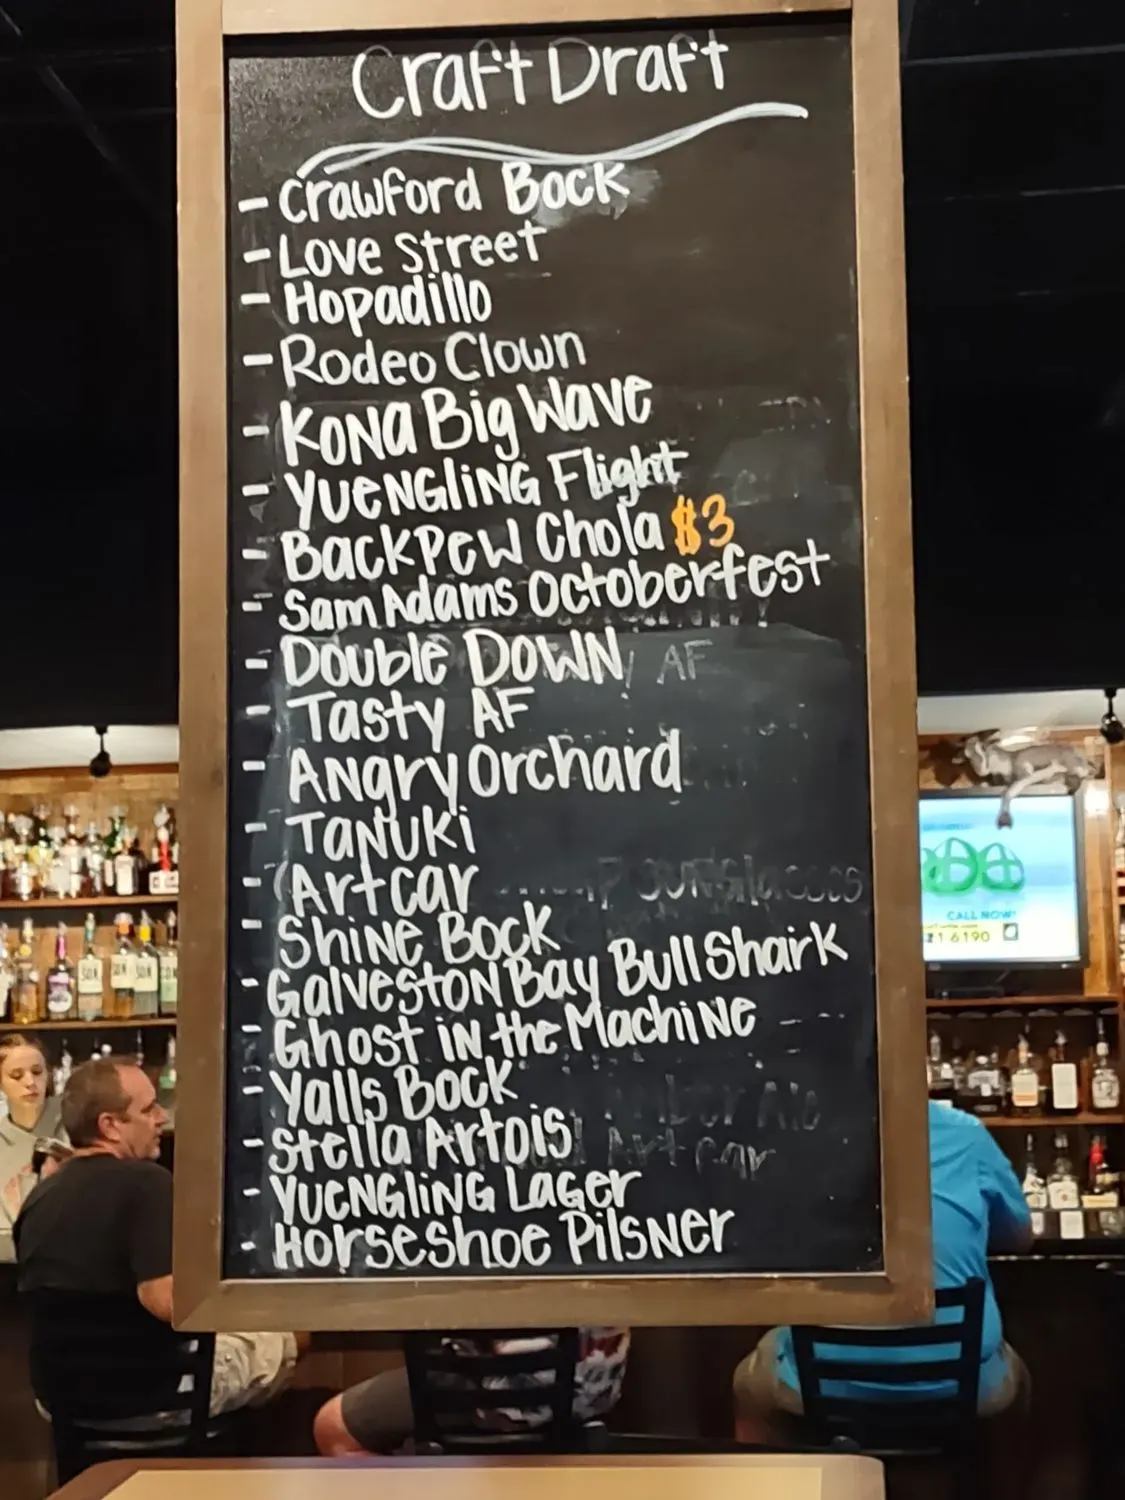 Craft Draft
- Crawford Bock
- Love Street
- Hopadillo
- Rodeo Clown
- Kona Big Wave
- Yuengling Flight
- Backpew Chola $3
- Sam Adams Octoberfest
- Double Down
AF
- Tasty AF
- Angry Orchard
- Tanuki
- Artcar
- Shine Bock
- Galveston Bay Bull Shark
- Ghost in the Machine
- Yalls Bock
- Stella Artois
Art car
- Yuengling Lager
- Horseshoe Pilsner
CALL NOW!